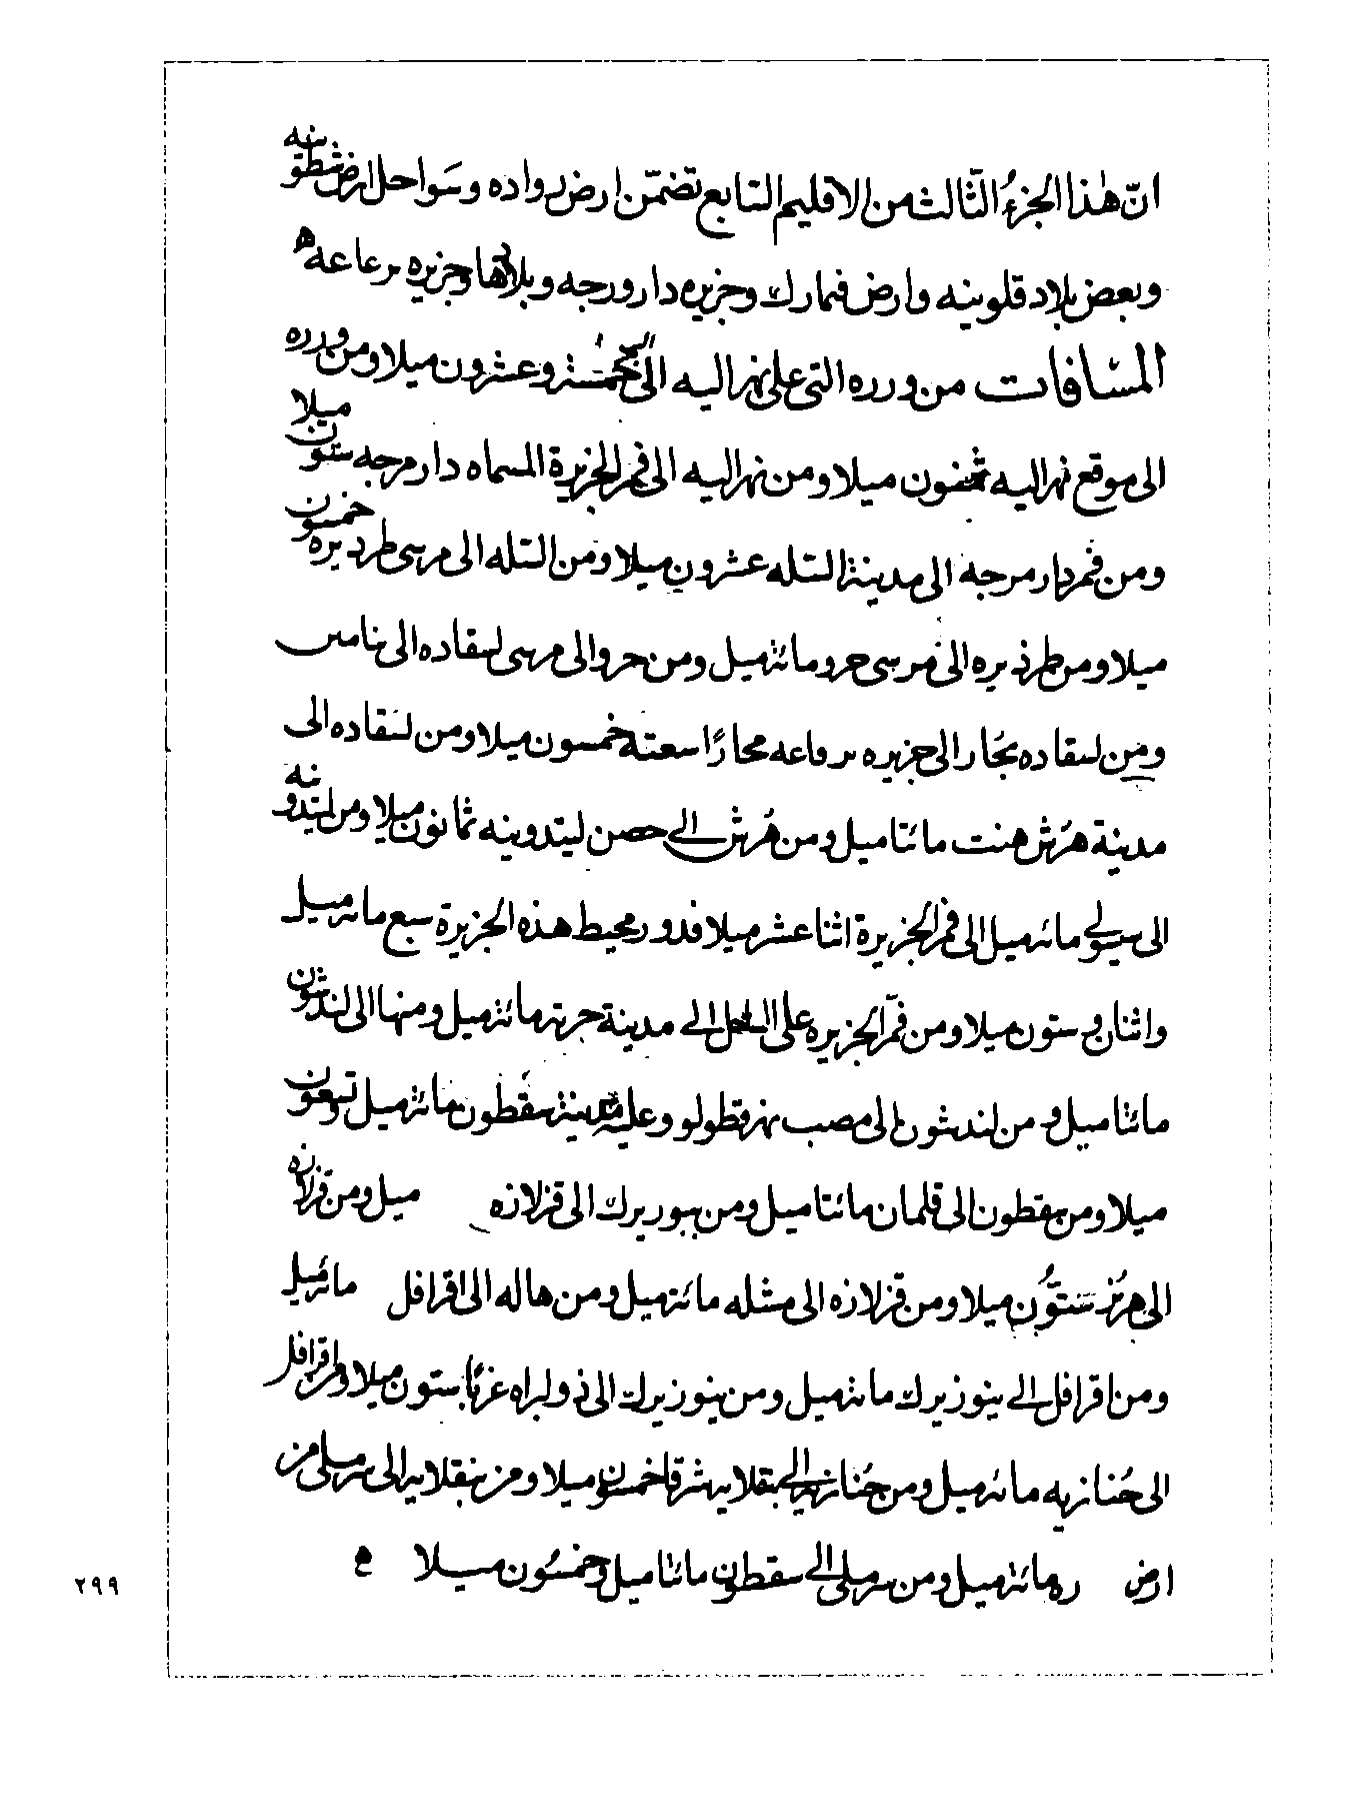 انّ هٰذا الجزءُ الثّالث من الاقليم السّابع تضمّن ارض برواده وسَواحل ارض شطونيه
وبعض بلاد قلونيه وارض فيمارك وجزيره دارورجه وبلادها وجزيره برعاعه ه
المسَافات من ورره التى على نهر البه الى خمسة وعشرون ميلا ومن ورره
الى موقع نهر البه خمسون ميلا ومن نهر البه الى فم الجزيرة المسماه دارمرجه ستون ميلا
ومن فم دارمرجه الى مدينة السله عشرون ميلا ومن السله الى مرسى طرذيره خمسون
ميلا ومن طرذيره الى مرسى حرو مائة ميل ومن حرو الى مرسى لسقاده الى
ومن لسقاده بحَار الى جزيره برقاعه مجازًا سعته خمسون ميلا ومن لسقاده الى
مدينة هرُش هنت مائتا ميل ومن هُرش الى حصن ليتدوينه ثمانون ميلا ومن ليتدونيه
الى سيسولى مائة ميل الى فم الجزيرة اثنا عشر ميلا فدور محيط هذه الجزيرة سبع مائة ميل
واثنان وستون ميلا ومن فمّ الجزيره على الساحل الى مدينة جرته مائة ميل ومنها الى لندشون
مائتا ميل ومن لندشون الى مصب نهر قطولو وعليه مدينة سقطون مائة ميل وتسعون
ميلا ومن سقطون الى قلمان مائتا ميل ومن بيوريرك الى قزلازه ميل ومن قزلازه
الى هرُنز سَتوُّن ميلا ومن قزلازه الى مشله مائة ميل ومن هاله الى اقرافل مائة ميل
ومن اقرافل الى بنوزبرك مائة ميل ومن بنوزبرك الى ذولبراه غربًا ستون ميلا ومن اقرافل
الى جُنازيه مائة ميل ومن جُنازيه الى بنقلايه شرقا خمسون ميلا ومن بنقلايه الى سرملى من
ارض ره مائة ميل ومن سرملى الى سقطون مائتا ميل وخمسُون ميلا
٢٩٩